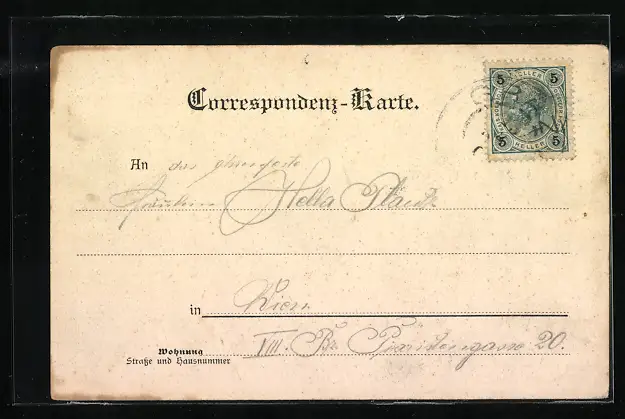 Correspondenz-Karte.
5 HELLER 5
5 HELLER 5
An das
Fräulein Hella
in Wien
Wohnung VIII. Bz. Piaristengasse 20.
Straße und Hausnummer